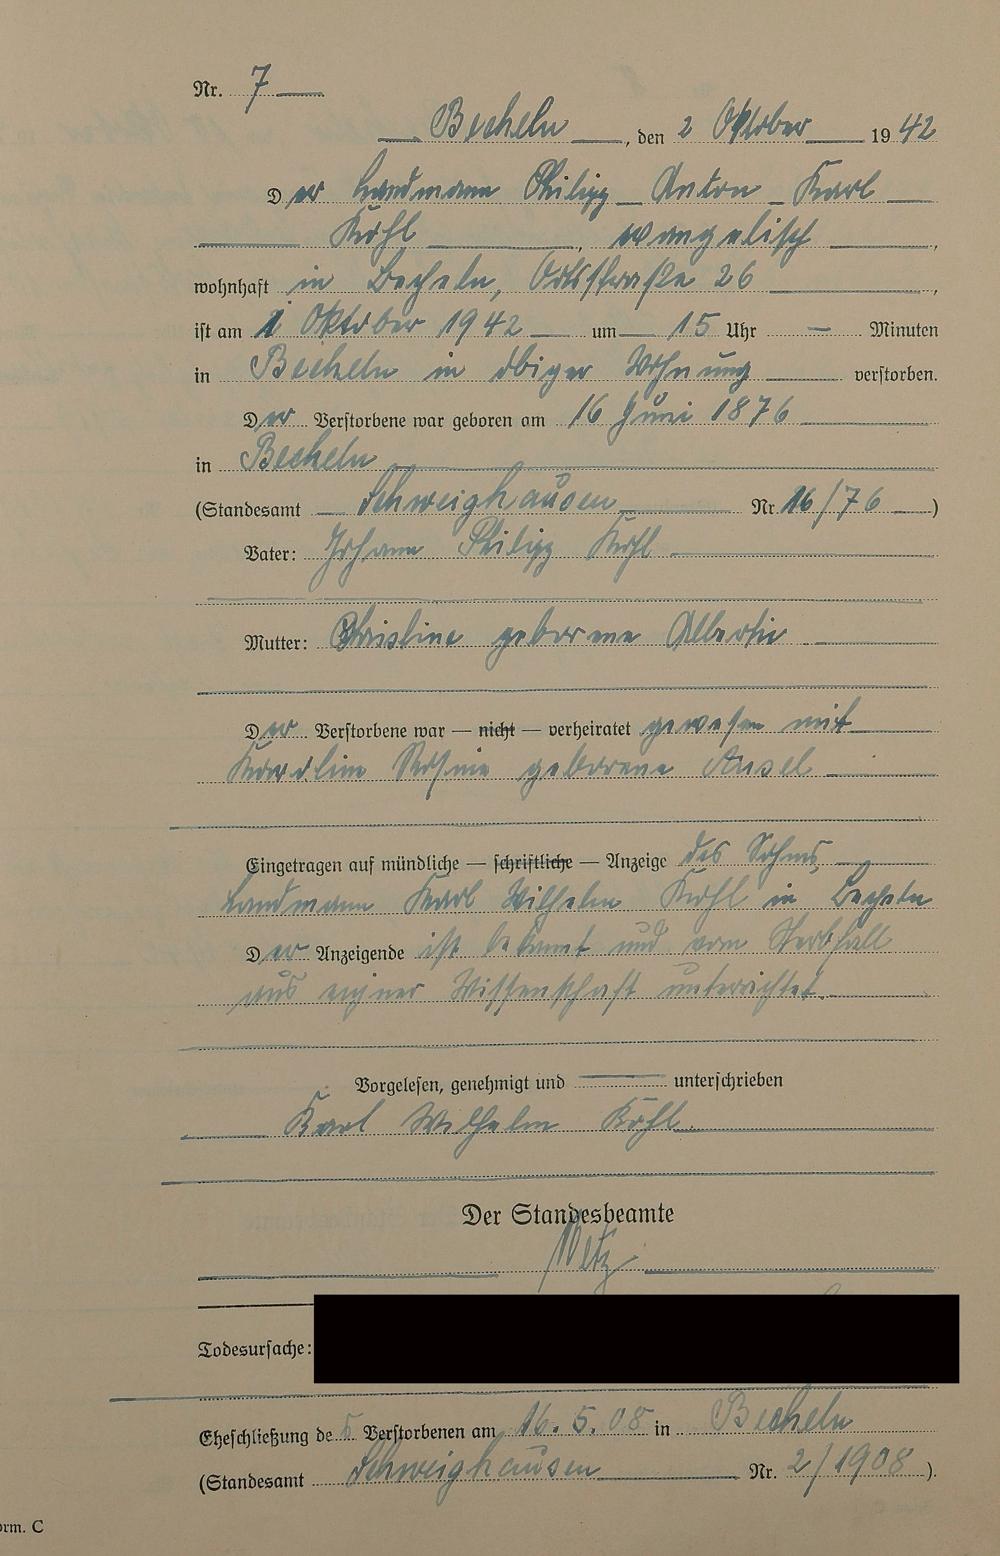 Nr. 7
Becheln, den 2 Oktober 1942
Der Landmann Philipp Anton Karl
Köhl, evangelisch,
wohnhaft in Becheln, Ortsstraße 26,
ist am 1 Oktober 1942 um 15 Uhr — Minuten
in Becheln in obiger Wohnung verstorben.
Der Verstorbene war geboren am 16 Juni 1876
in Becheln
(Standesamt Schweighausen Nr. 16/76)
Vater: Johann Philipp Köhl
Mutter: Christine geborene Alberti
Der Verstorbene war — nicht — verheiratet gewesen mit
Karoline Rosine geborene Ansel
Eingetragen auf mündliche — schriftliche — Anzeige des Sohnes,
Landmann Karl Wilhelm Köhl in Becheln
Der Anzeigende ist bekannt und vom Sterbfall
aus eigner Wissenschaft unterrichtet.
Vorgelesen, genehmigt und unterschrieben
Karl Wilhelm Köhl.
Der Standesbeamte
Metz
Todesursache:
Eheschließung des Verstorbenen am 16.5.08 in Becheln
(Standesamt Schweighausen Nr. 2/1908).
orm. C